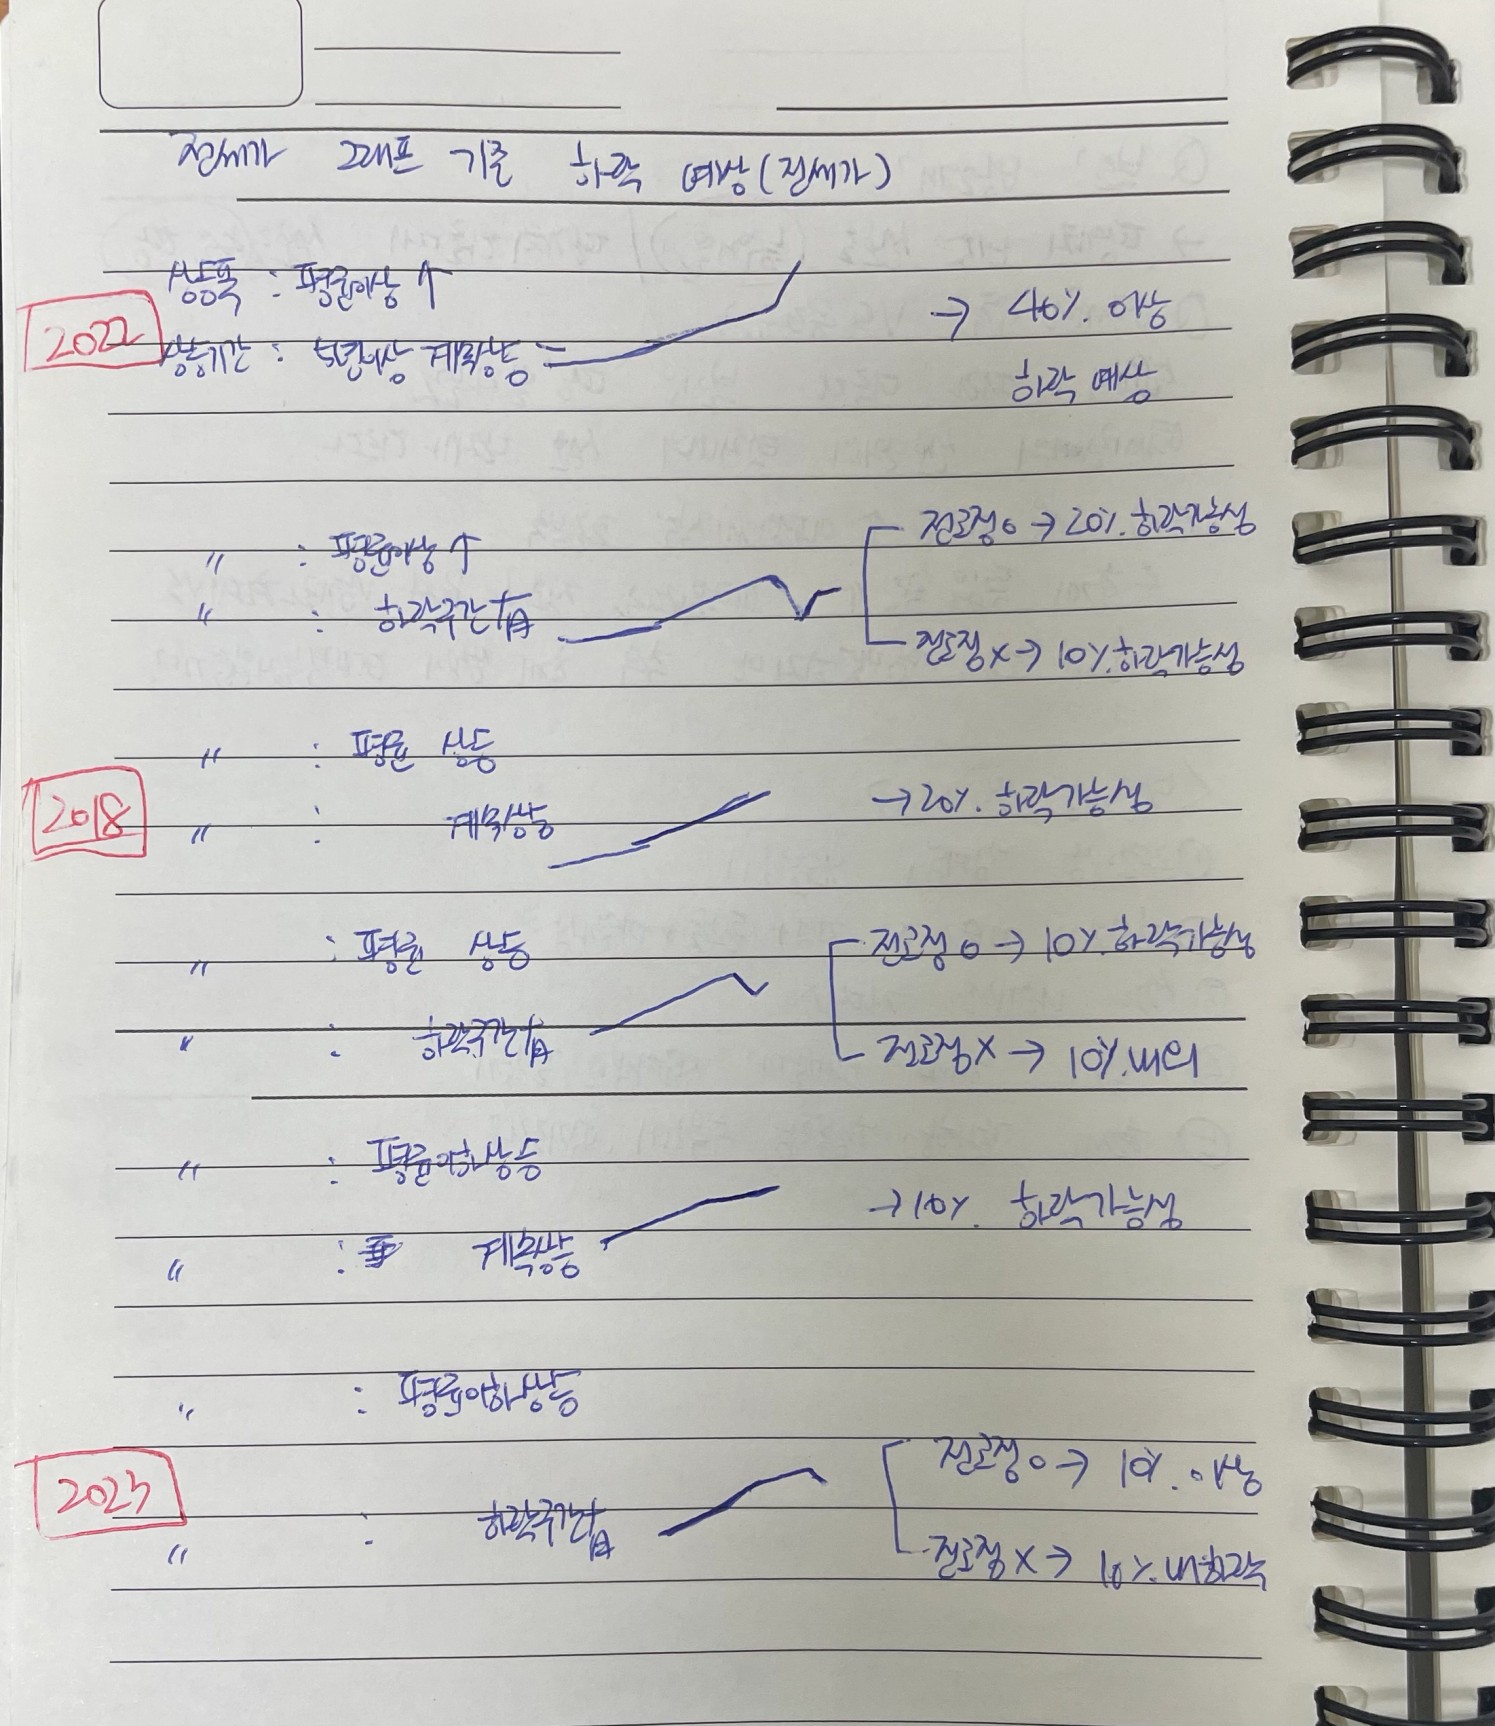 전세가 그래프 기준 하락 예상(전세가)
상승폭 : 평균이상 ↑
2022
→ 40%. 이상
상승기간 : 5년이상 계속상승 =
하락 예상
전고점 o → 20%. 하락가능성
〃 : 평균이상 ↑
〃 : 하락구간 有
전고점 x → 10%. 하락가능성
〃 : 평균 상승
2018
〃 : 계속상승
→ 20%. 하락가능성
〃 : 평균 상승
전고점 o → 10%. 하락가능성
〃 : 하락구간有
전고점 x → 10%. 내외
〃 : 평균이하상승
→ 10%. 하락가능성
〃 : 계속상승
〃 : 평균이하상승
전고점 o → 10%. 이상
2023
〃 : 하락구간有
전고점 x → 10%. 내하락